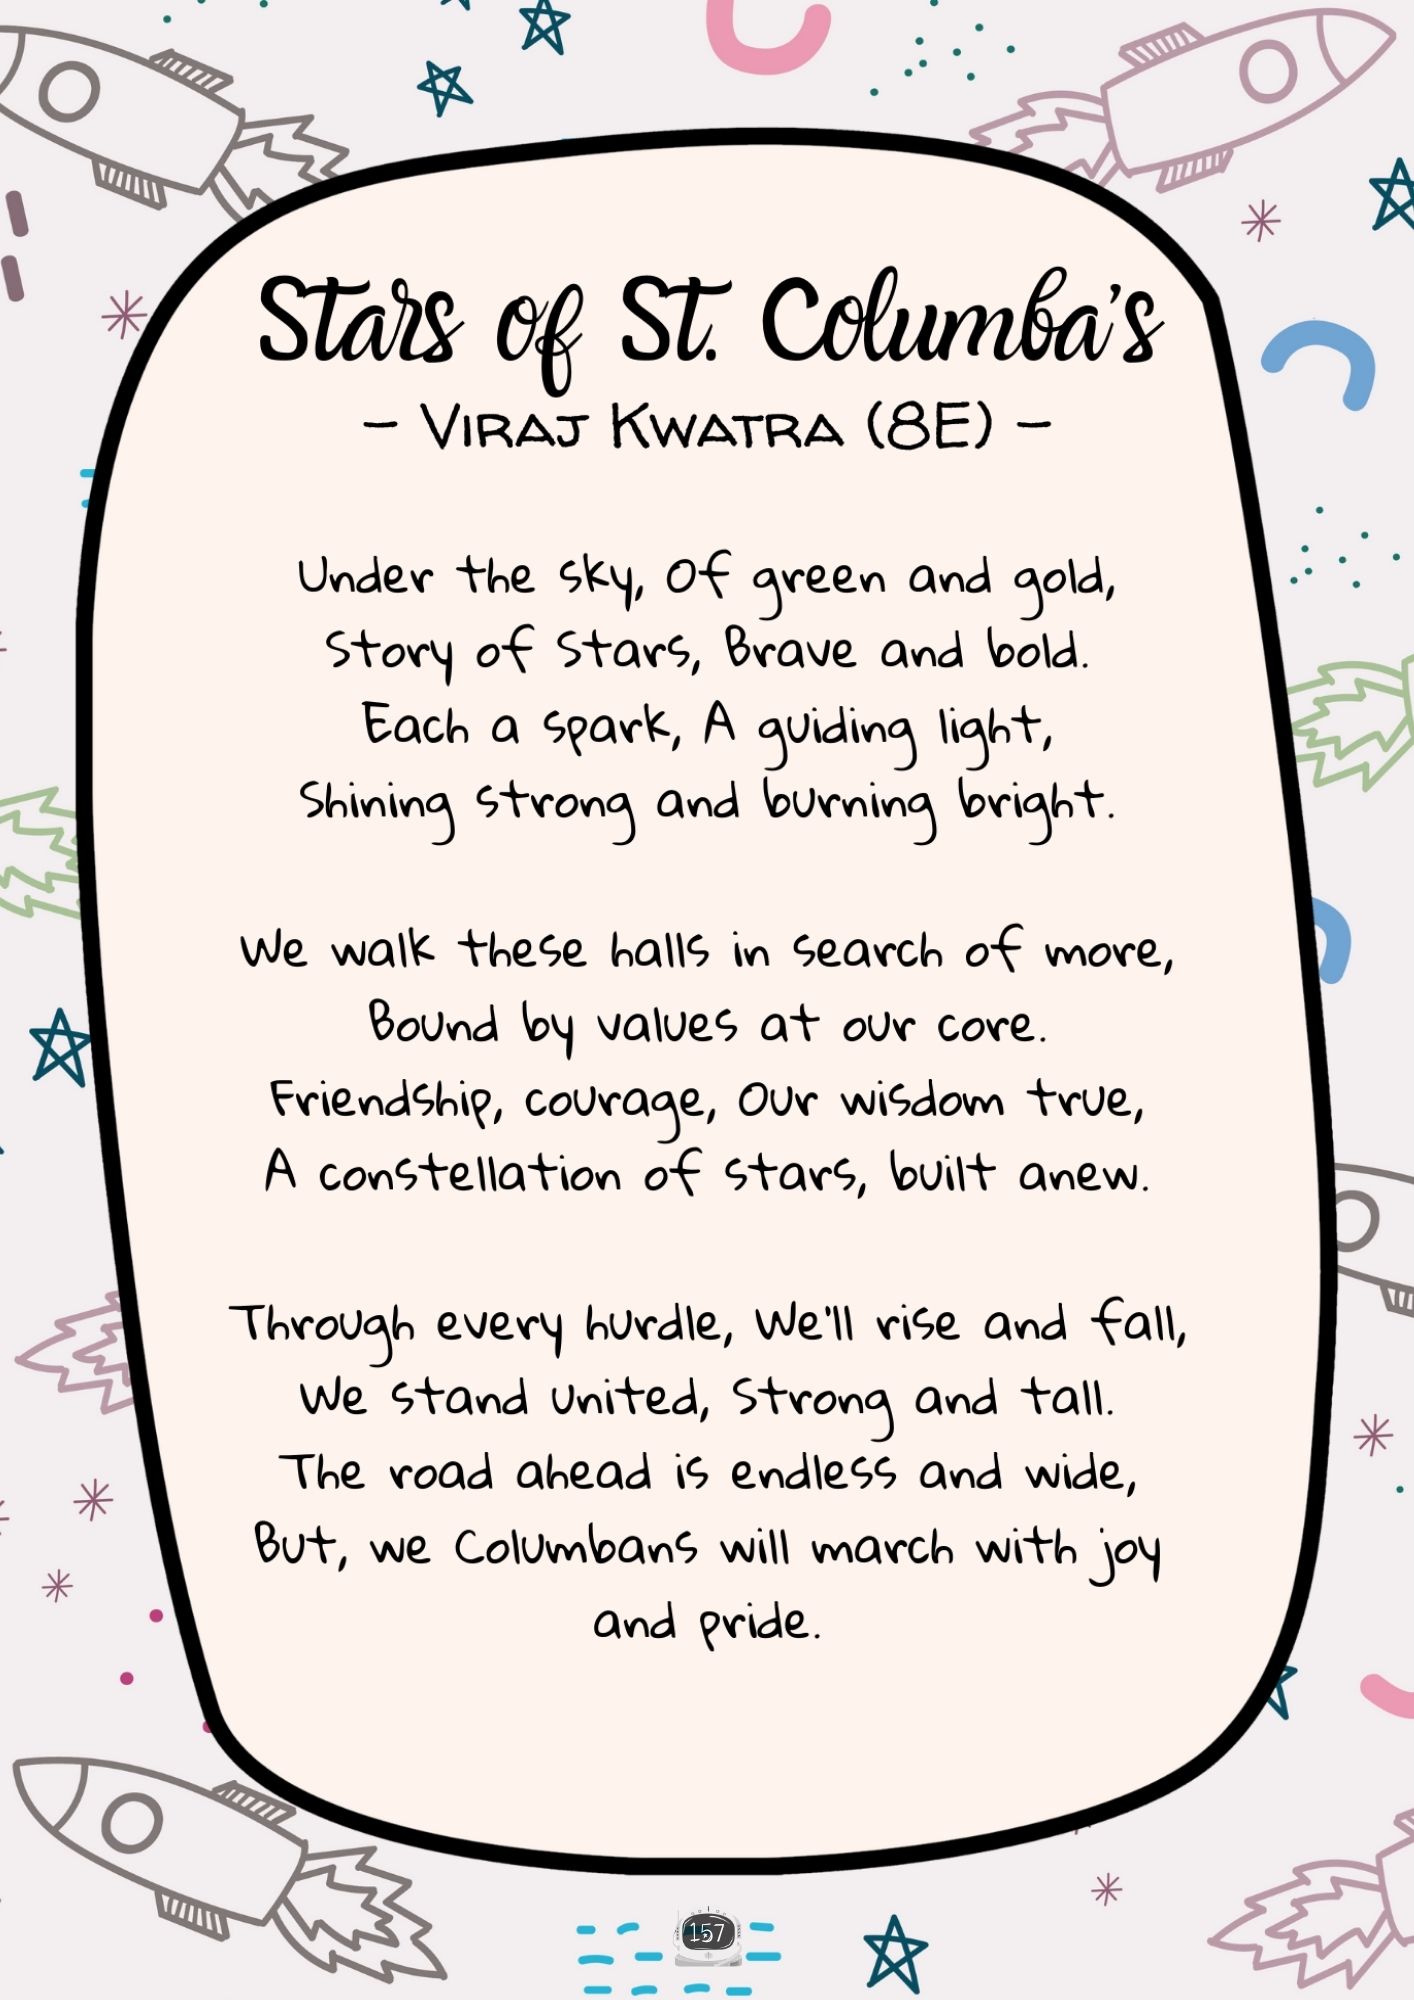 Stars of St. Columba's
- Viraj Kwatra (8E) -
Under the sky, Of green and gold,
Story of Stars, Brave and bold.
Each a spark, A guiding light,
Shining strong and burning bright.
We walk these halls in search of more,
Bound by values at our core.
Friendship, courage, Our wisdom true,
A constellation of stars, built anew.
Through every hurdle, We'll rise and fall,
We stand united, Strong and tall.
The road ahead is endless and wide,
But, we Columbans will march with joy
and pride.
157